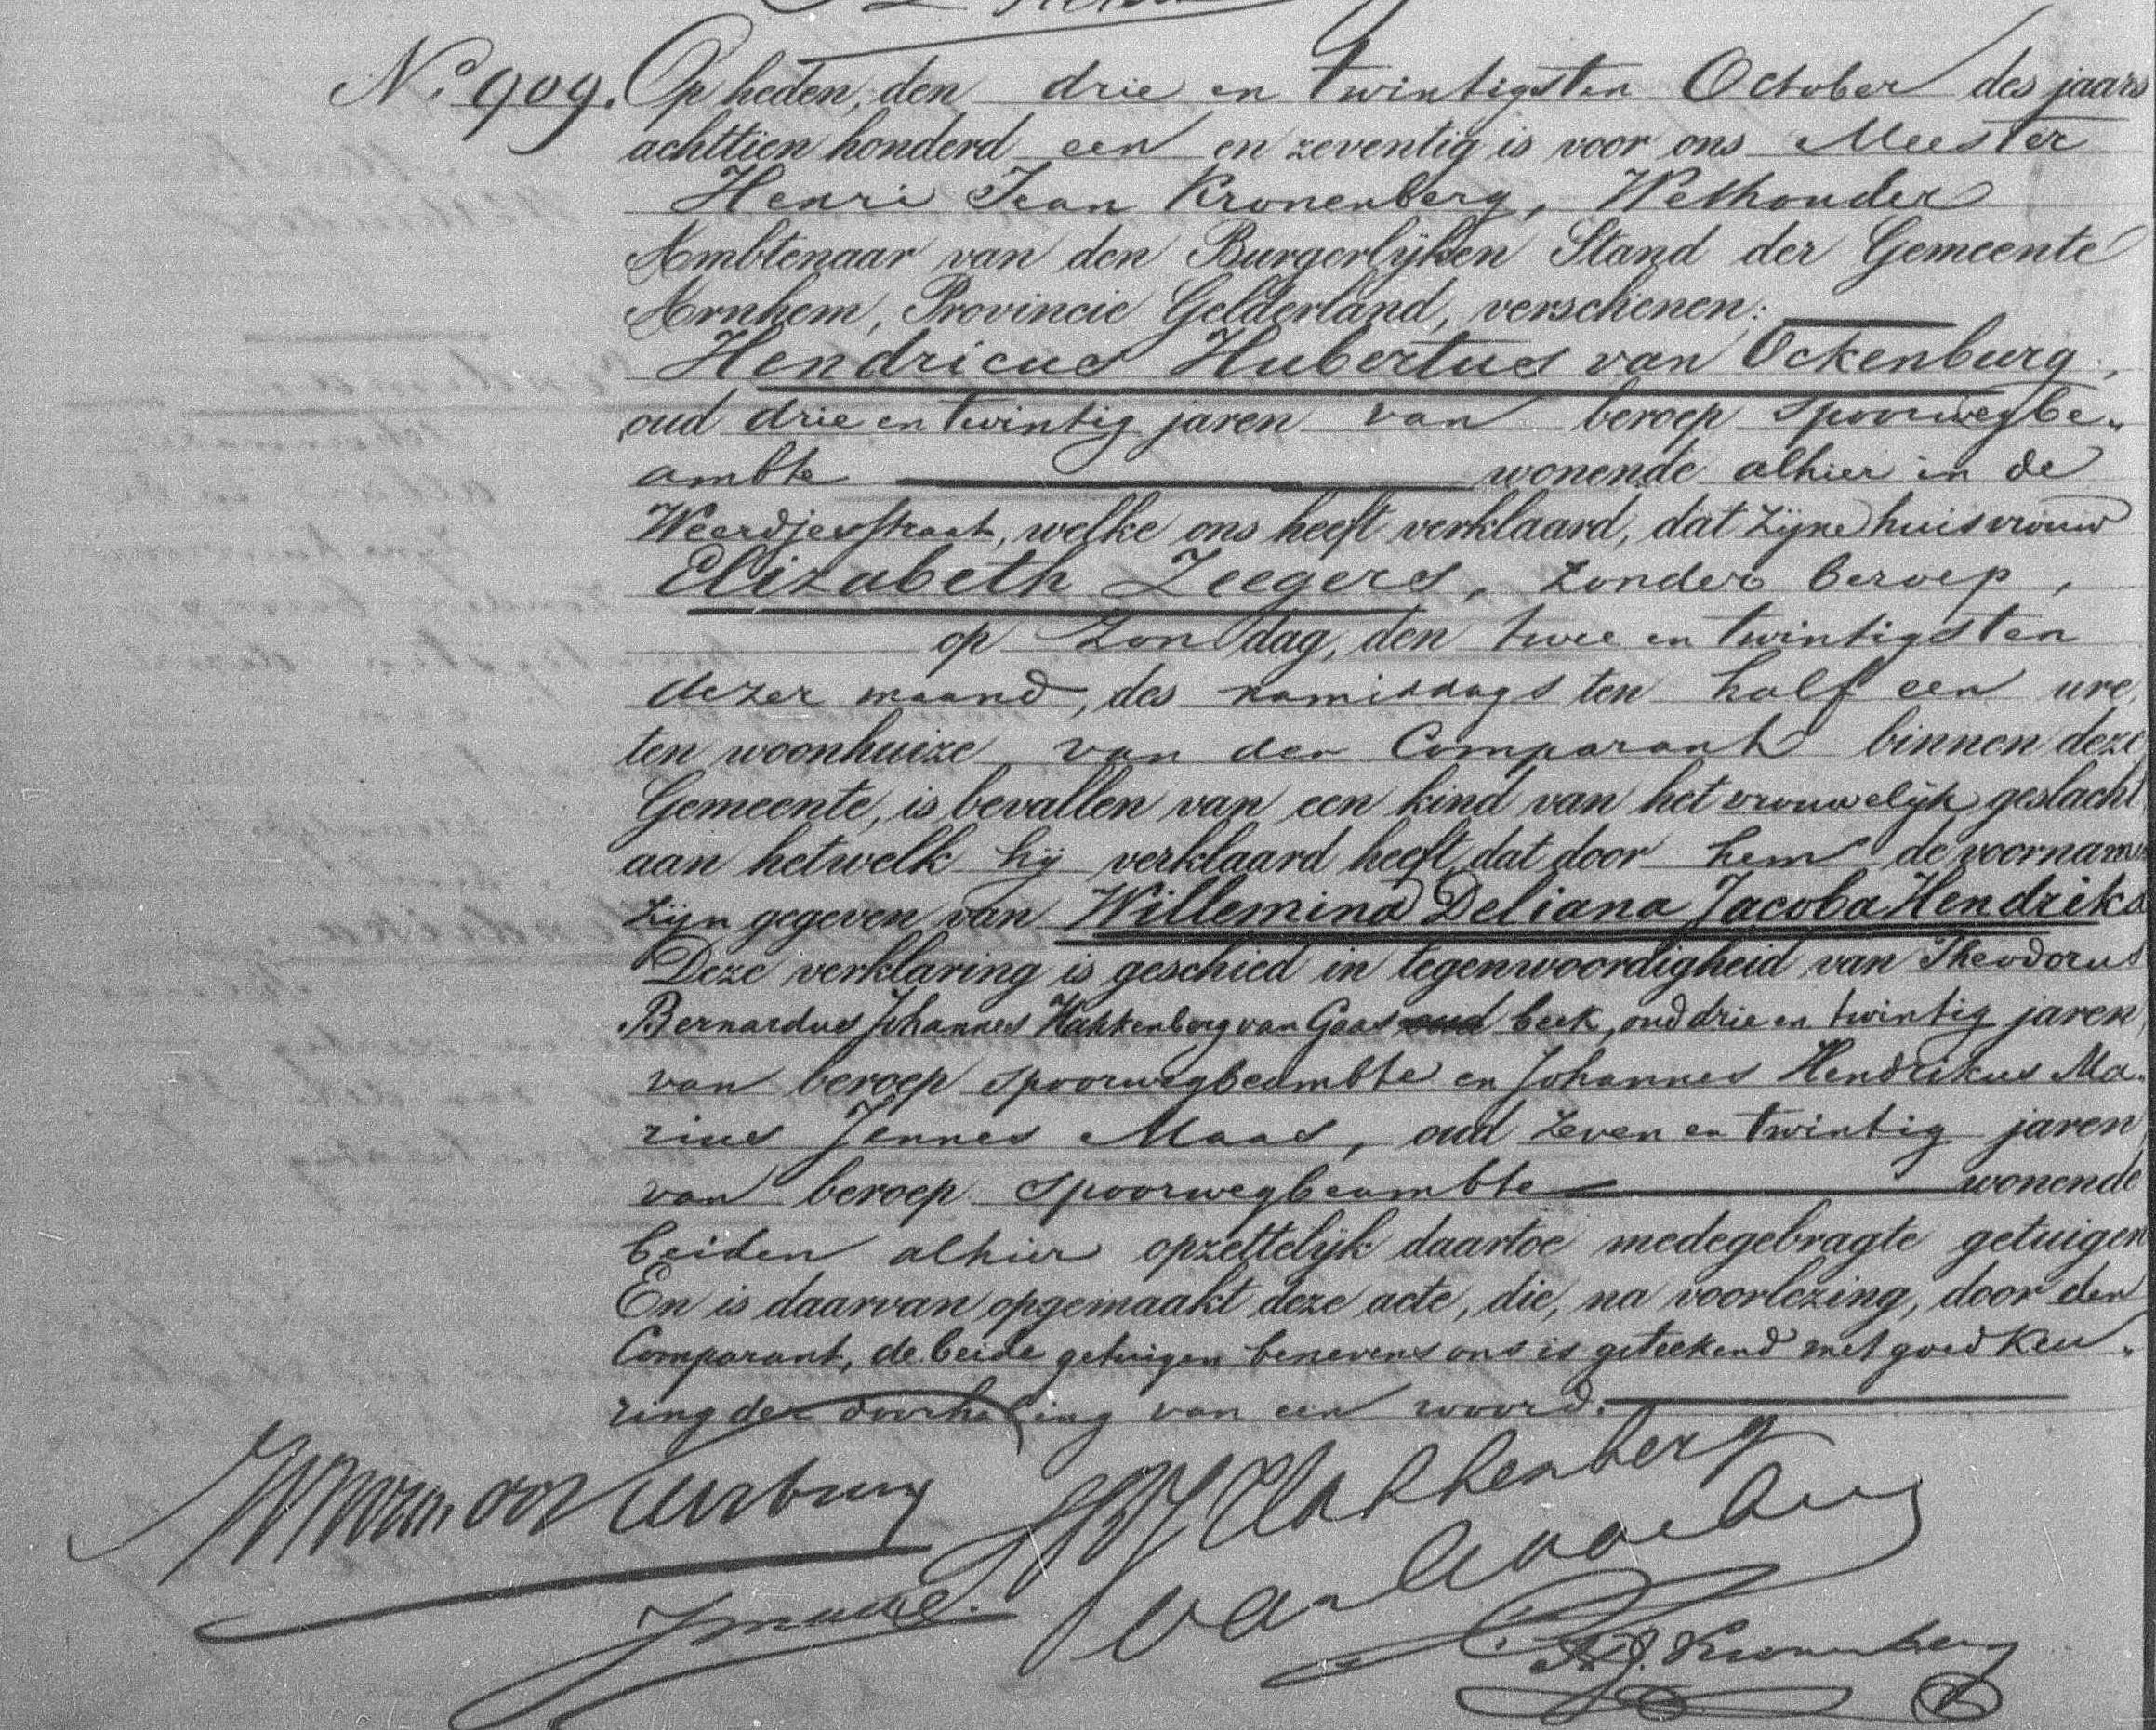 No. 909. Op heden, den drie en twintigsten October des jaars
achttien honderd een en zeventig is voor ons Meester
Henri Jean Kronenberg, Wethouder
Ambtenaar van den Burgerlijken Stand der Gemeente
Arnhem, Provincie Gelderland, verschenen:
Hendricus Hubertus van Ockenburg,
oud drie en twintig jaren van beroep spoorwegbe„
ambte wonende alhier in de
Weerdjesstraat, welke ons heeft verklaard, dat zijne huisvrouw
Elizabeth Zeegers, zonder beroep,
op Zondag, den twee en twintigsten
dezer maand, des namiddags ten half een ure,
ten woonhuize van den Comparant binnen deze
Gemeente, is bevallen van een kind van het vrouwelijk geslacht
aan hetwelk hij verklaard heeft, dat door hem de voornamen
zijn gegeven van Willemina Deliana Jacoba Hendrika
Deze verklaring is geschied in tegenwoordigheid van Theodorus
Bernardus Johannes Hakkenberg van Gaas beek, oud drie en twintig jaren
van beroep spoorwegbeambte en Johannes Hendrikus Ma„
rius Jennes Maas, oud zeven en twintig jaren
van beroep spoorwegbeambte wonende
beiden alhier opzettelijk daartoe medegebragte getuigen
En is daarvan opgemaakt deze acte, die, na voorlezing, door den
Comparant, de beide getuigen benevens ons is geteekend met goedkeu„
ring der doorhaling van een woord.
Hakkenberg
van Gaasbeek
H.J. Kronenberg